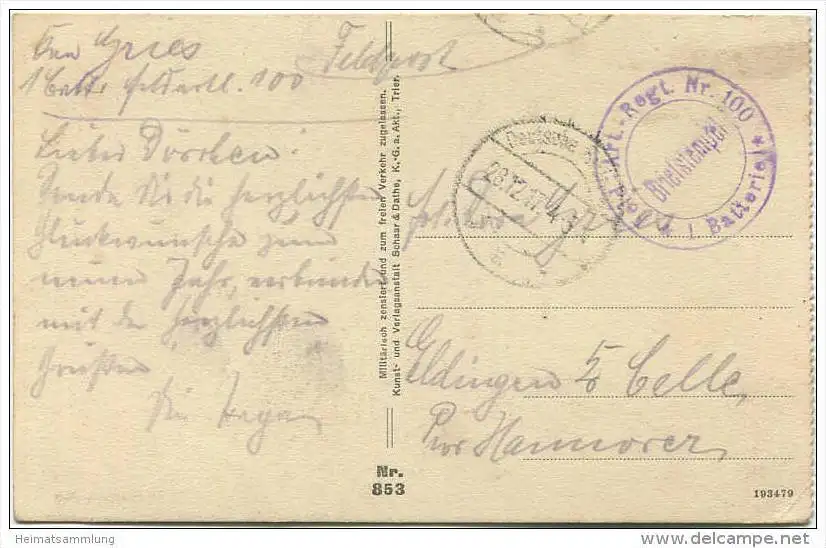 Gries
1 Batt. Feldartl. 100
Feldpost
Liebes Dörchen!
Sende Dir die herzlichsten
Glückwünsche zum
neuen Jahr, verbunden
mit den herzlichsten
Grüßen
Militärisch zensiert und zum freien Verkehr zugelassen.
Kunst- und Verlagsanstalt Schaar & Dathe, K.-G. a. Akt., Trier.
Nr.
853
Deutsche
28.12.17
Art.-Regt. Nr. 100 * 1 Batterie *
Briefstempel
Gries
Eldingen b/ Celle,
Prov Hannover,
193479
Heimatsammlung
www.delcampe.net